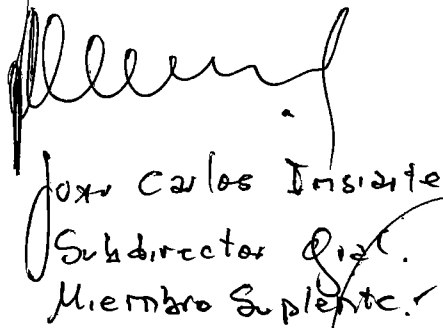 Juan Carlos Insiarte
Subdirector Gral.
Miembro Suplente.